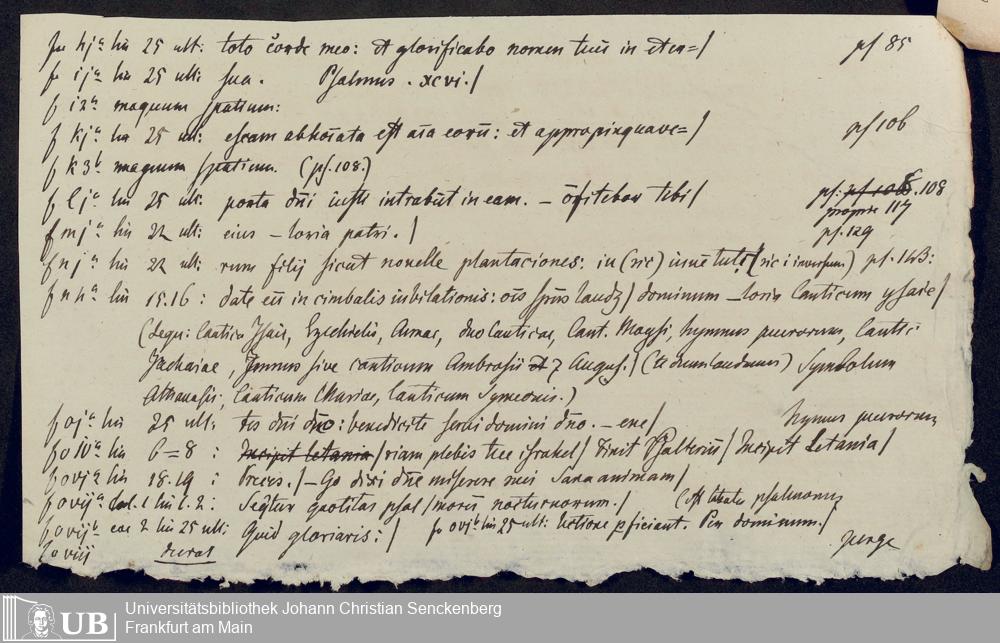 fw hjª lin 25 ult: toto corde meo: et glorificabo nomen tuū in eter=/ ps 85
fo ijª lin 25 ult: sua. Psalmus. xcvi./
f i2ª magnum spatium:
f kjª lin 25 ult: escam abhoīata est aīa eorū: et appropinquave=/ ps 106
f k3ᵇ magnum spatium. (ps. 108.)
f ljª lin 25 ult: porta dn̄i iusti intrabūt in eam. – ōfitebor tibi/ ps: 108
f mjª lin 22 ult: eius – loria patri./ propre 117
ps. 129
f njª lin 22 ult: rum filij sicut novelle plantaciones: in (sic) iuuētute (sic i inversum) ps. 143:
f n 4ª lin 15.16: date eū in cimbalis iubilationis: oīs spūs laudz/ dominum – loria Canticum ysaie/
(sequ: Cantica Isaie, Ezechielis, Annae, duo Canticae, Cant. Moysi, hymnus puerorum, Cantic:
Zachariae, Jmnus sive canticum Ambrosii et Augus./ (te deum laudamus) Symbolum
Athanasii, Canticum Mariae, Canticum Symeonis.)
f ojª lin 25 ult: tes dn̄i dn̄o: benedicite servi domini dn̄o. – ene/ hymnus puerorum
f oivª lin 6=8: Incipit letania/ riam plebis tue israhel/ Finit Psalteriū/ Incipit Letania/
f ovjª lin 18.19: Preces./ – Go dixi dn̄e miserere mei Sana animam/
f ovijª col. 1 lin l. 2: Seq̄tur quotitas psal/morū nocturnorum./ psalmorum
f ovijᵇ col 2 lin 25 ult: Quid gloriaris:/ fo ovjᵇ lin 25 ult: lectione pficiant. Per dominum./
fo viij deest perge
Universitätsbibliothek Johann Christian Senckenberg
Frankfurt am Main
UB